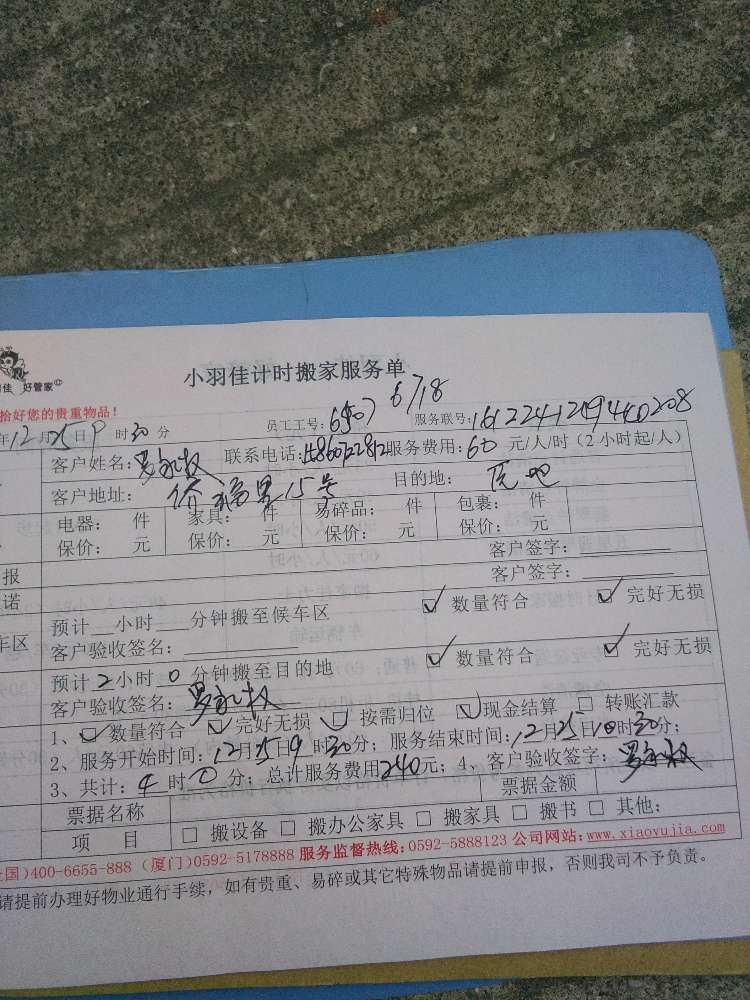 羽佳 好管家
小羽佳计时搬家服务单
拾好您的贵重物品!
年12月25日9时30分 员工工号: 6507 6718 服务联号: 161224121944D208
客户姓名: 联系电话: 服务费用: 60 元/人/时(2小时起/人)
客户地址: 里15号 目的地:
电器: 件 家具: 件 易碎品: 件 包裹: 件
保价: 元 保价: 元 保价: 元 保价: 元
报 客户签字:
诺 客户签字:
预计 小时 分钟搬至候车区 ☑ 数量符合 ☑ 完好无损
车区 客户验收签名:
预计2小时0分钟搬至目的地 ☑ 数量符合 ☑ 完好无损
客户验收签名:
1、☑ 数量符合 ☑ 完好无损 ☑ 按需归位 ☑ 现金结算 □ 转账汇款
2、服务开始时间: 12月25日9时30分; 服务结束时间: 12月25日 时30分;
3、共计: 4时0分; 总计服务费用240元; 4、客户验收签字:
票据名称 票据金额
项 目 □ 搬设备 □ 搬办公家具 □ 搬家具 □ 搬书 □ 其他:
国)400-6655-888 (厦门)0592-5178888 服务监督热线:0592-5888123 公司网站:www.xiaoyujia.com
请提前办理好物业通行手续,如有贵重、易碎或其它特殊物品请提前申报,否则我司不予负责。